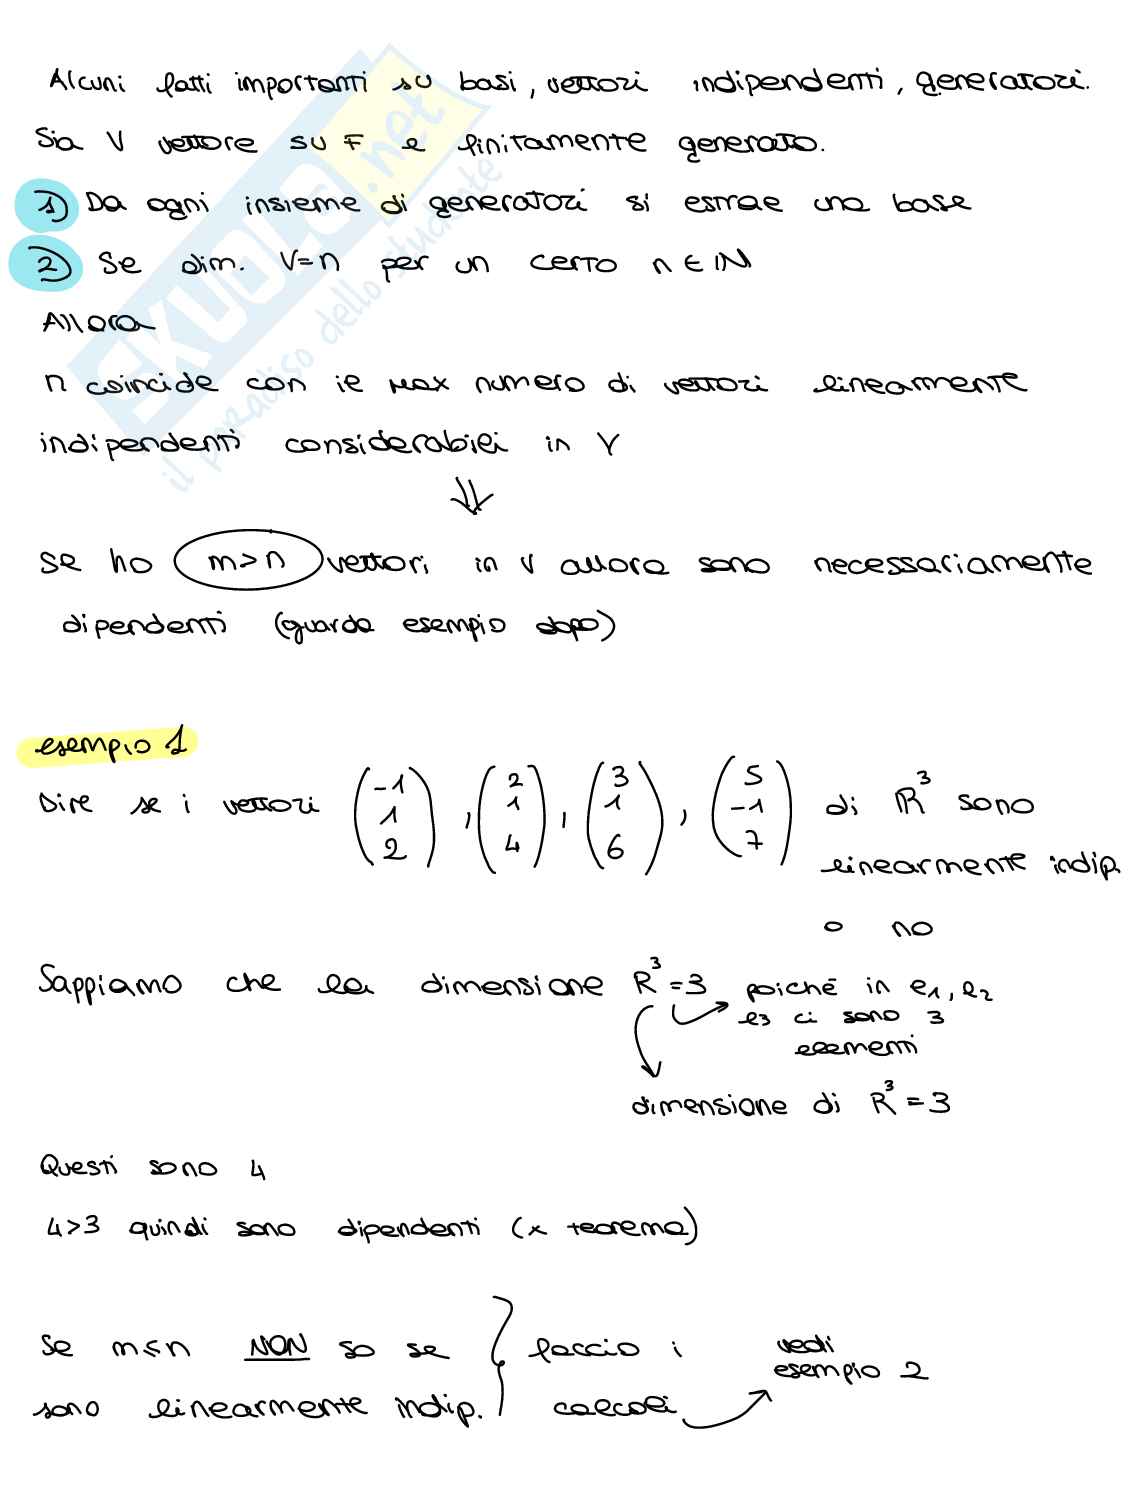 Alcuni fatti importanti su basi, vettori indipendenti, generatori.
Sia V vettore su F e finitamente generato.
1) Da ogni insieme di generatori si estrae una base
2) Se dim. V=n per un certo n ∈ IN
Allora
n coincide con il max numero di vettori linearmente
indipendenti considerabili in V
⇓
Se ho m>n vettori in V allora sono necessariamente
dipendenti (guarda esempio dopo)
esempio 1
Dire se i vettori (-1 1 2), (2 1 4), (3 1 6), (5 -1 7) di R³ sono
linearmente indip.
o no
Sappiamo che la dimensione R³=3 poiché in e1, e2
e3 ci sono 3
elementi
dimensione di R³=3
Questi sono 4
4>3 quindi sono dipendenti (x teorema)
Se m≤n NON so se } faccio i vedi
esempio 2
sono linearmente indip. calcoli
SKUOLA.net
il paradiso dello studente